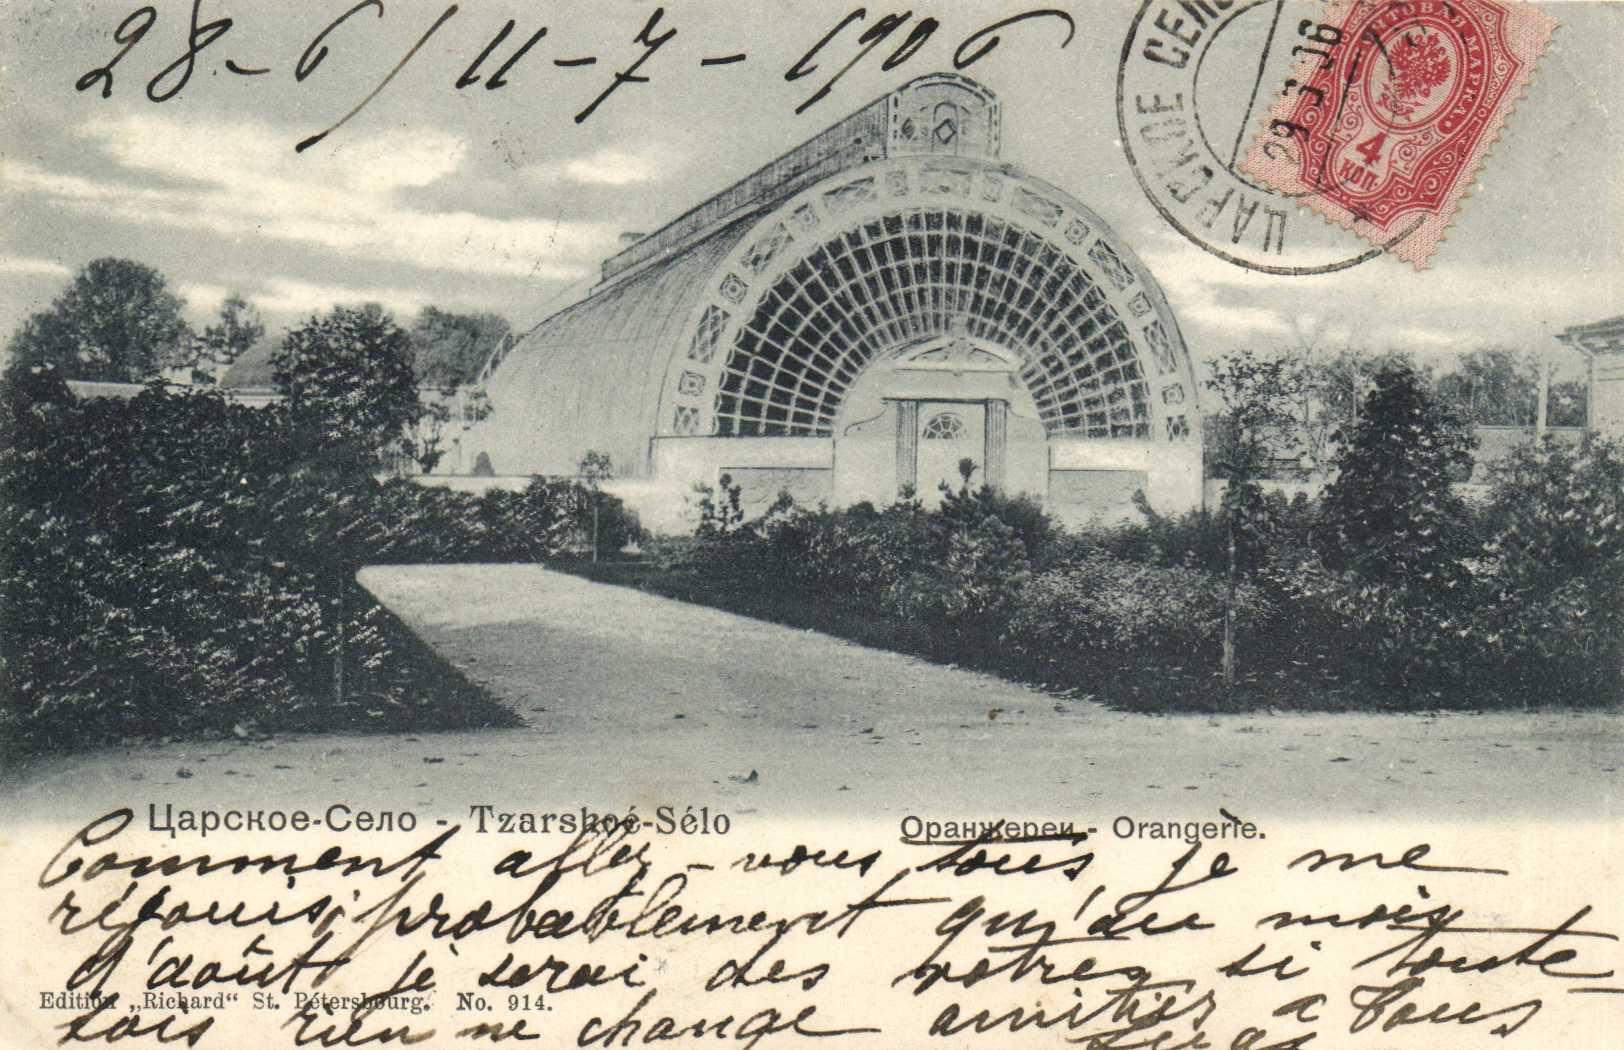 28-6/11-7-1906
ЦАРСКОЕ СЕЛО
29 06
ПОЧТОВАЯ МАРКА.
4
КОП.
Царское-Село - Tzarskoé-Sélo
Оранжереи - Orangerie.
Comment allez-vous tous je me
réjouis, probablement qu'au mois
d'août je serai des votres si toute-
Edition „Richard“ St. Pétersbourg. No. 914.
fois rien ne change amitiés a Tous